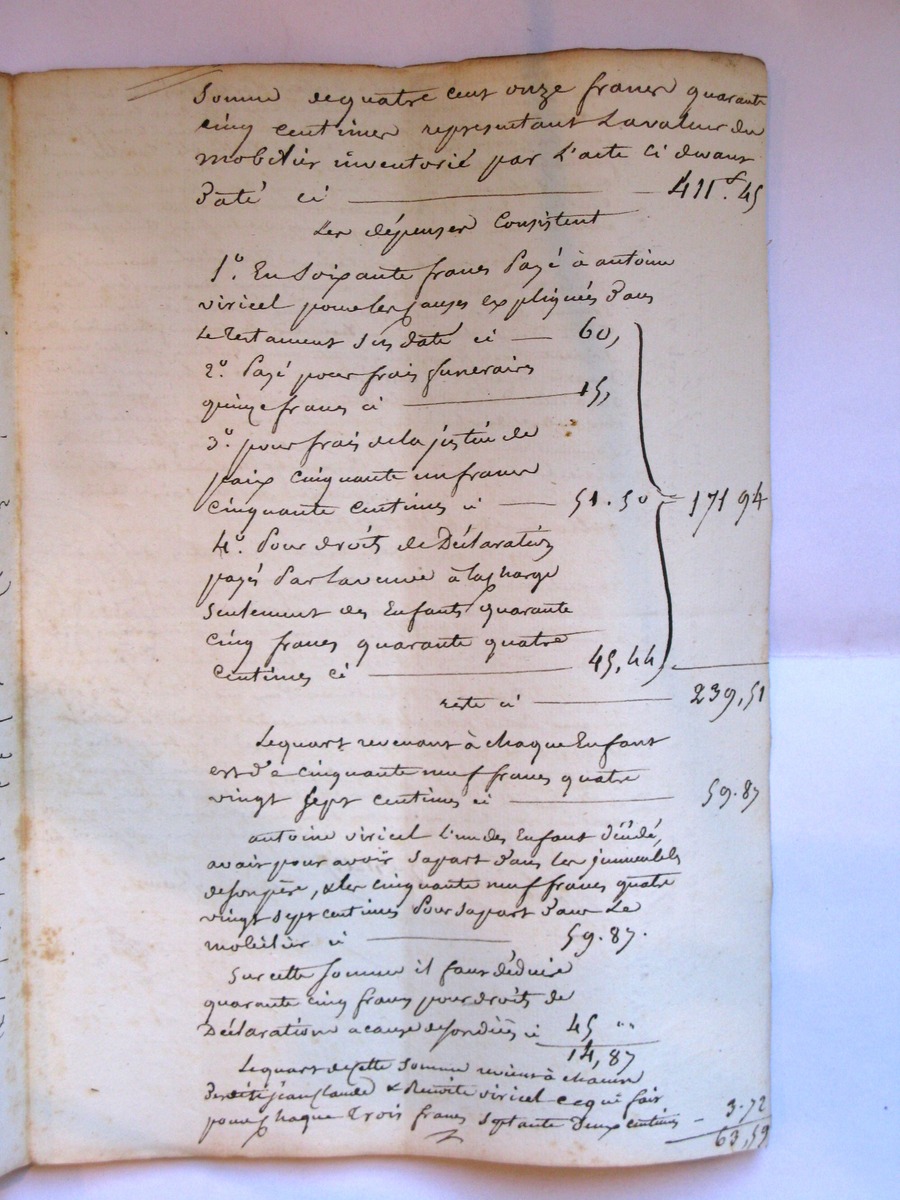 Somme de quatre cent onze francs quarante
cinq centimes representant la valeur du
mobilier inventorié par l'acte ci devant
Daté ci — 411.f 45
Les dépenses Consistent
1º. En soixante francs Payé à antoine
viricel pour les causes expliqués dans
le testament sus daté ci — 60,
2º. Payé pour frais funeraires
quinze francs ci — 15,
3º. pour frais de la justice de
paix cinquante un francs
cinquante centimes ci — 51.50 = 171 94
4º. Pour droits de Déclaration
payés Par la veuve à la charge
seulement des Enfants quarante
cinq francs quarante quatre
Centimes ci — 45,44
reste ci — 239,51
Le quart revenant à chaque Enfant
est de cinquante neuf francs quatre
vingt sept centimes ci — 59.87
antoine viricel l'un des Enfant décédé,
avait pour avoir sa part dans les immeubles
de son père, & les cinquante neuf francs quatre
vingt sept centimes Pour sa part dans Le
mobilier ci — 59.87.
Sur cette somme il faut déduire
quarante cinq francs pour droits de
Déclaration a cause de son décès ci 45 "
14,87
Le quart de cette somme revient à chacun
Desdits jean Claude & Benoite viricel ce qui fait
pour chaque Trois francs septante deux centimes — 3.72
63,59